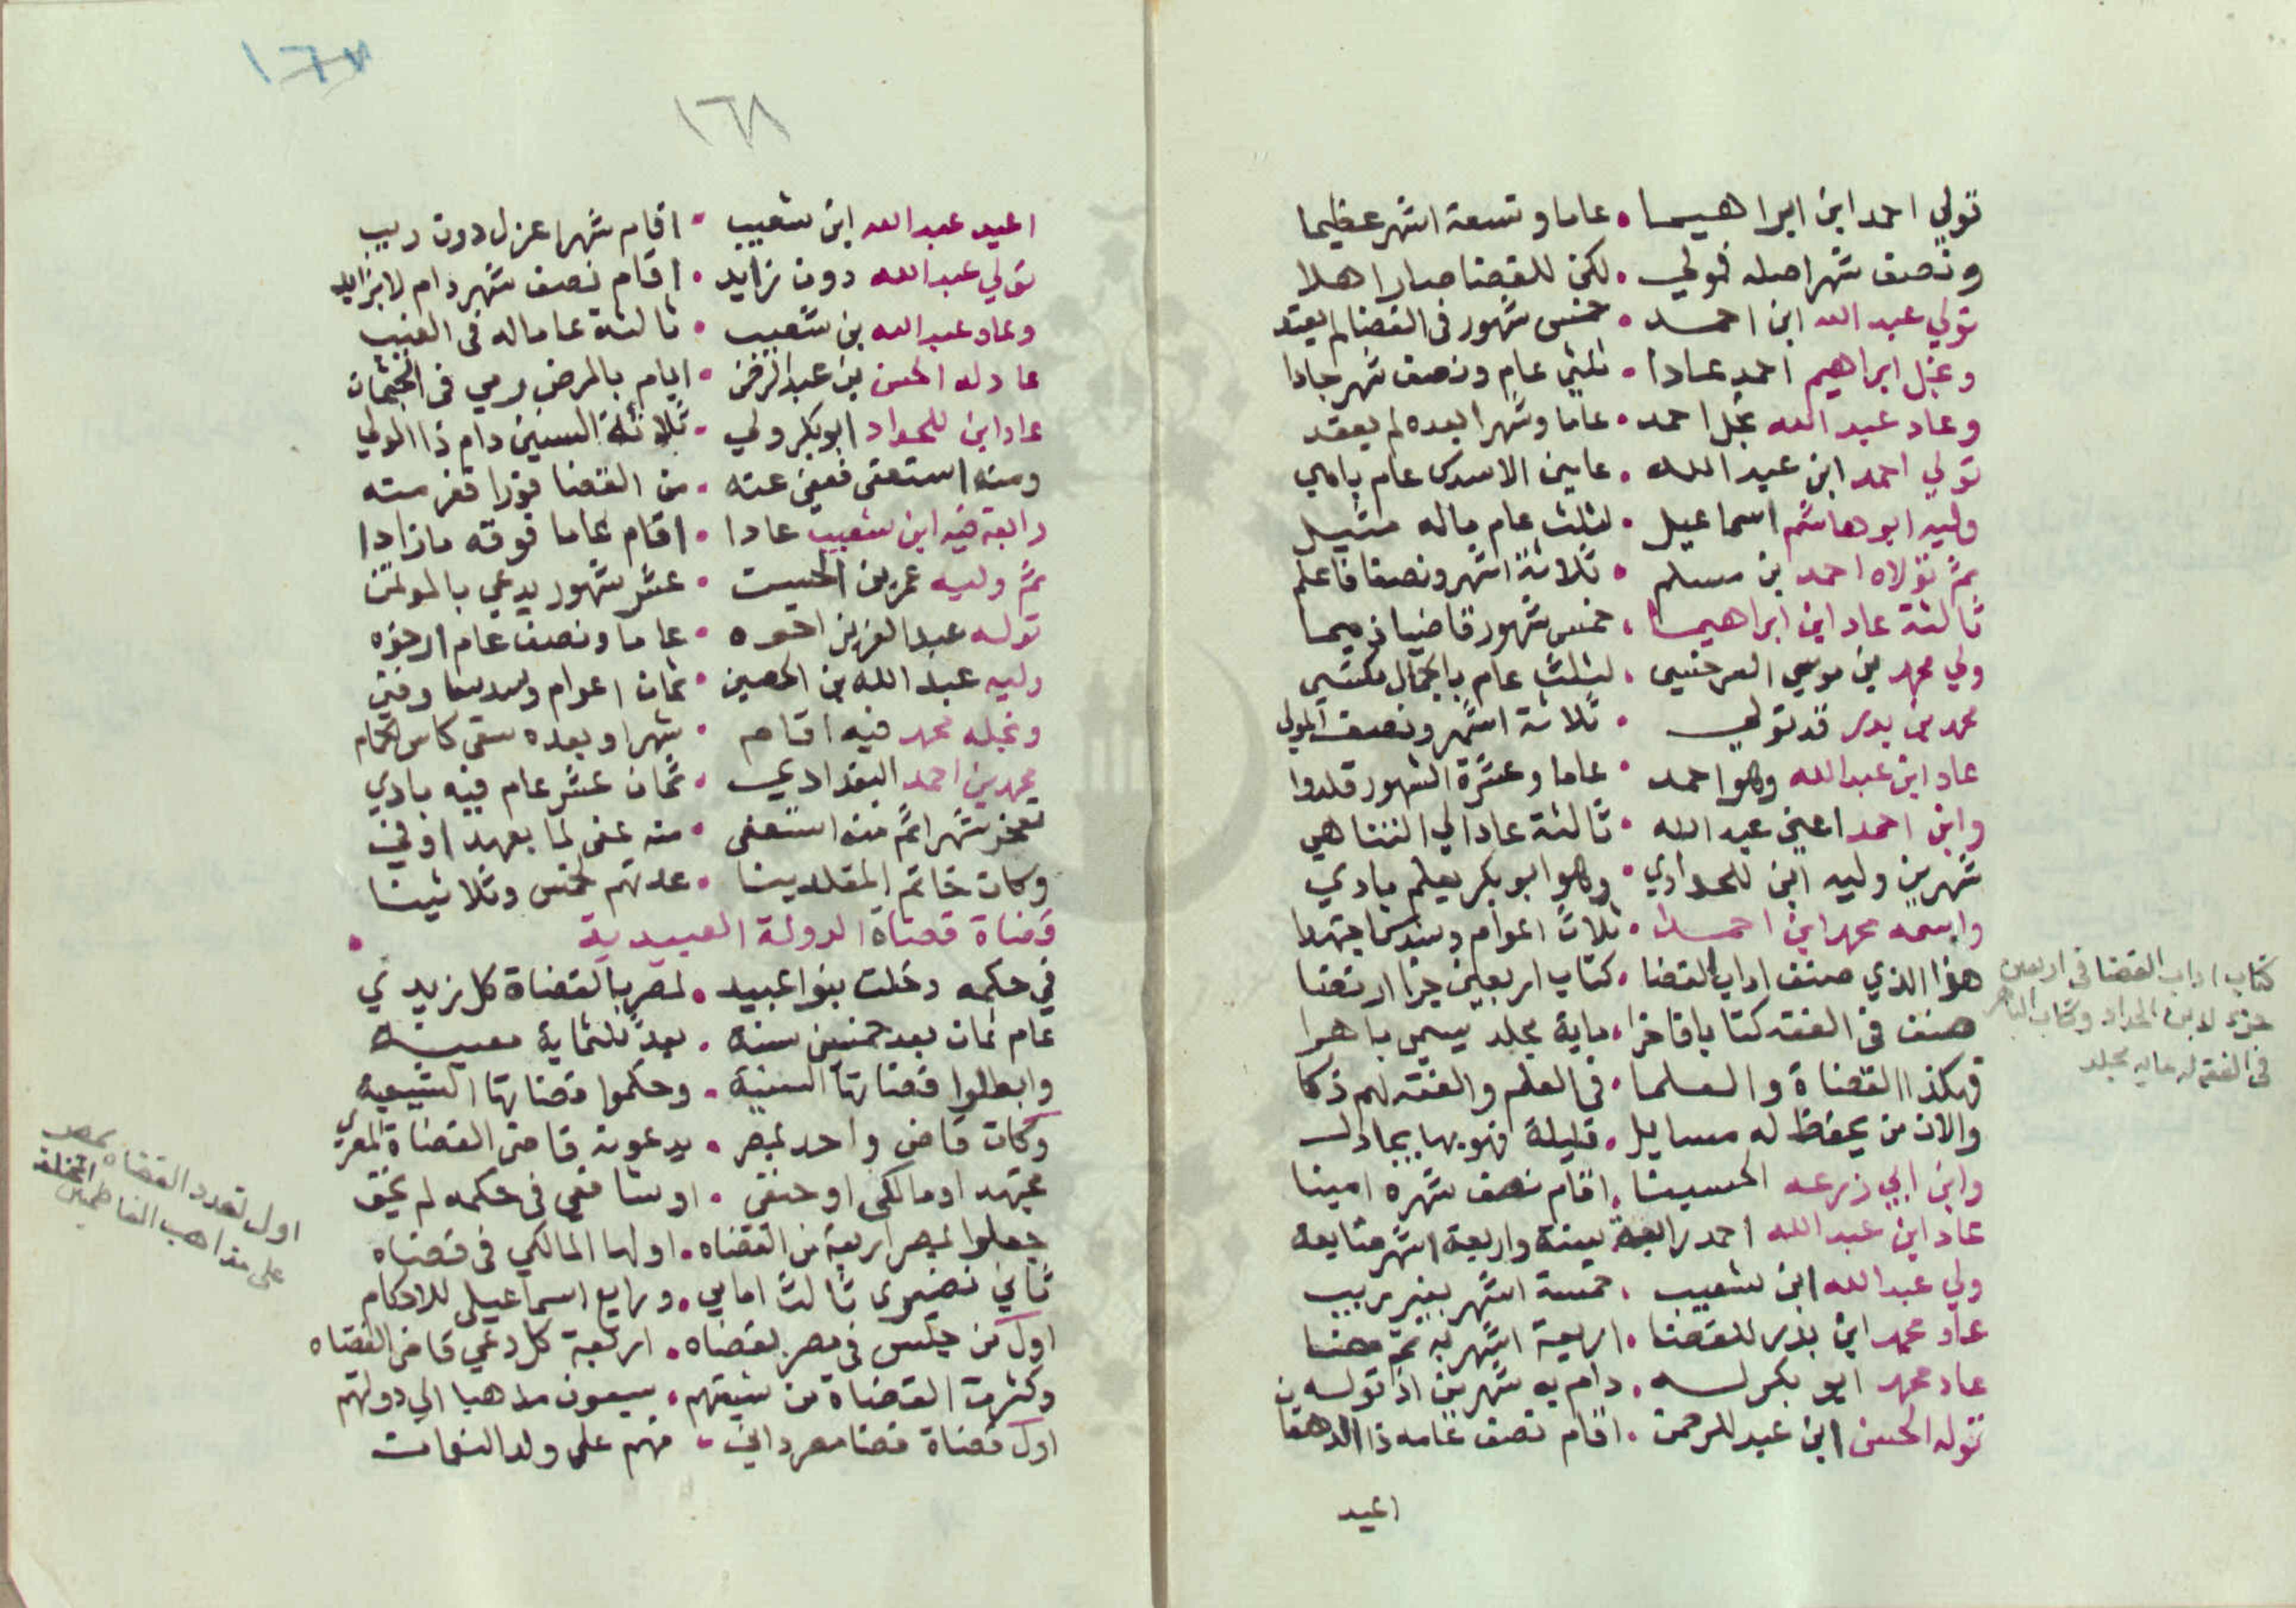 تولي احمد ابن ابراهيما • عاما وتسعة اشهر عظيما
ونصف شهر اصله فولي • لكن للقضا صار اهلا
تولي عبد الله ابن احمد • خمس شهور في القضا لم يعتد
ونجل ابراهيم احمد عادا • ثلثي عام ونصف شهر جادا
وعاد عبد الله نجل احمد • عاما وشهرا بعده لم يعقد
تولي احمد ابن عبد الله • عامين الاسدس عام باهي
وليه ابو هاشم اسماعيل • لثلث عام ماله مثيل
ثم تولاه احمد بن مسلم • ثلاثة اشهر ونصفا فاعلم
ثالثة عاد ابن ابراهيما • خمس شهور قاضيا زميما
ولي محمد بن موسي السرخسي • لثلث عام بالجمال مكتسي
محمد بن بدر قد تولي • ثلاثة اشهر ونصف المولي
عاد ابن عبد الله وهو احمد • عاما وعشرة الشهور قلدوا
وابن احمد اعني عبد الله • ثالثة عاد الي التناهي
شهرين وليه ابن للحدادي • وهو ابو بكر بعلم بادي
واسمه محمد ابن احمدا • ثلاث اعوام وسدس اجتهدا
هذا الذي صنف اداب القضا • كتاب اربعين جزا ارتضا
صنف في الفقه كتابا فاخرا • ماية مجلد يسمي باهرا
فهكذا القضاة والعلما • في العلم والفقه لهم ذكا
والان من يحفظ له مسايل • قليلة فهو بها يجادل
وابن ابي زرعه الحسينا • اقام نصف شهره امينا
عاد ابن عبد الله احمد رابعة • بينة واربعة اشهر متابعه
ولي عبد الله ابن شعيب • خمسة اشهر بغير ريب
عاد محمد ابن بدر للقضا • اربعة اشهر به ثم مضا
عاد محمد ابو بكر له • دام به شهرين اذ توله
توله الحسن ابن عبد الرحمن • اقام نصف عامه ذا
اعيد
كتاب اداب القضا في اربعين
جزء لابن الحداد وكتاب الباهر
في الفقه له مايه مجلد
١٦٧
١٦٨
اعيد عبد الله ابن شعيب • اقام شهرا عزل دون ريب
تولي عبد الله دون زايد • اقام نصف شهر دام لا بزايد
وعاد عبد الله بن شعيب • ثالثة عاما له في الغيب
عاد له الحسن بن عبد الرحمن • ايام بالمرض رمي في الجثمان
عاد ابن للحداد ابو بكر ولي • ثلاثة السنين دام ذا الولي
ومنه استعفى فعفي عنه • من القضا فورا ففر منه
رابعة فيه ابن شعيب عادا • اقام عاما فوقه ما زادا
ثم وليه عمر بن الحسن • عشر شهور يدعي بالموتمن
توله عبد العزيز اخوه • عاما ونصف عام ارخوه
وليه عبد الله بن الحصين • ثمان اعوام وسدسا وفي
ونجله محمد فيه اقام • شهرا وبعده سقي كاس الحمام
محمد بن احمد البغدادي • ثمان عشر عام فيه بادي
شهرا ثم منه استعفى • منه عفى لما بعهد اوفى
وكان خاتم المقلدينا • عدتهم خمس وثلاثينا
قضاة قضاة الدولة العبيدية •
في حكمه دخلت بنوا عبيد • لمصر بالقضاة كل زيدي
عام ثمان بعد خمسين سنة • بعد ثلثماية معينه
وابطلوا قضاتها السنية • وحكموا قضاتها الشيعيه
وكان قاض واحد بمصر • يدعونه قاضي القضاة المصري
مجتهد او مالكي او حنفي • او شافعي في حكمه لم يخف
جعلوا لمصر اربعة من القضاه • اولها المالكي في قضاه
ثاني نصيري ثالث امامي • ورابع اسماعيلي للاحكام
اول من جلس في مصر بقضاه • اربعة كل دعي قاضي القضاه
وكثرت القضاة من شيعتهم • سبعون مذهبا الي دولتهم
اول قضاة قضا مصر داني • فهم علي ولد النعمان
اول تعدد القضاه بمصر
على مذاهب الفاطميين المختلفة